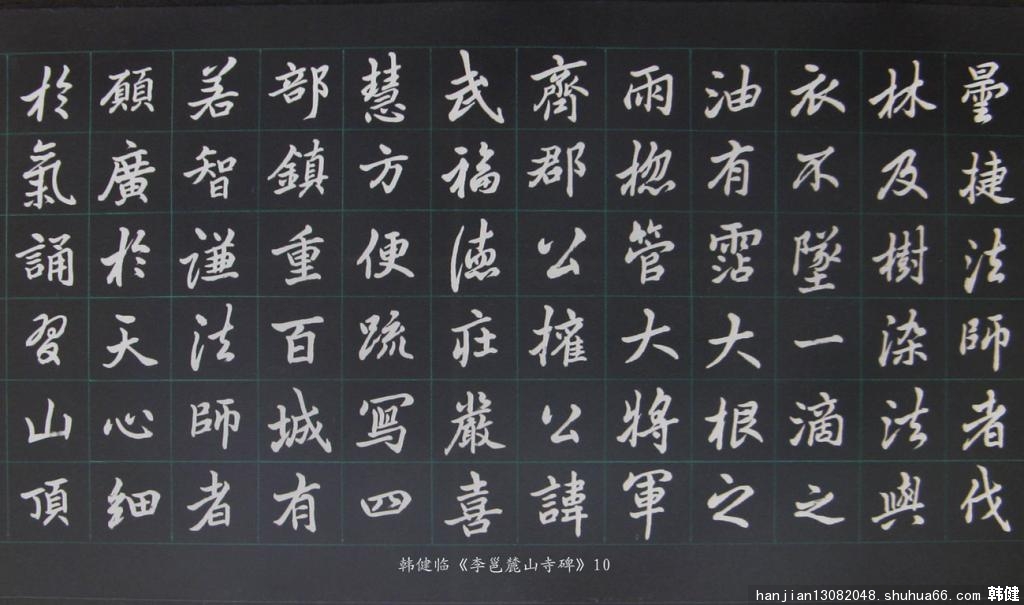 曇捷法師者伐
林及樹染法與
衣不墜一滴之
油有霑大根之
雨揔管大將軍
齊郡公擁公諱
武福德莊嚴喜
慧方便疏寫四
部鎮重百城有
若智謙法師者
願廣於天心細
於氣誦習山頂
韩健临《李邕麓山寺碑》10
hanjian13082048.shuhua66.com 韩健